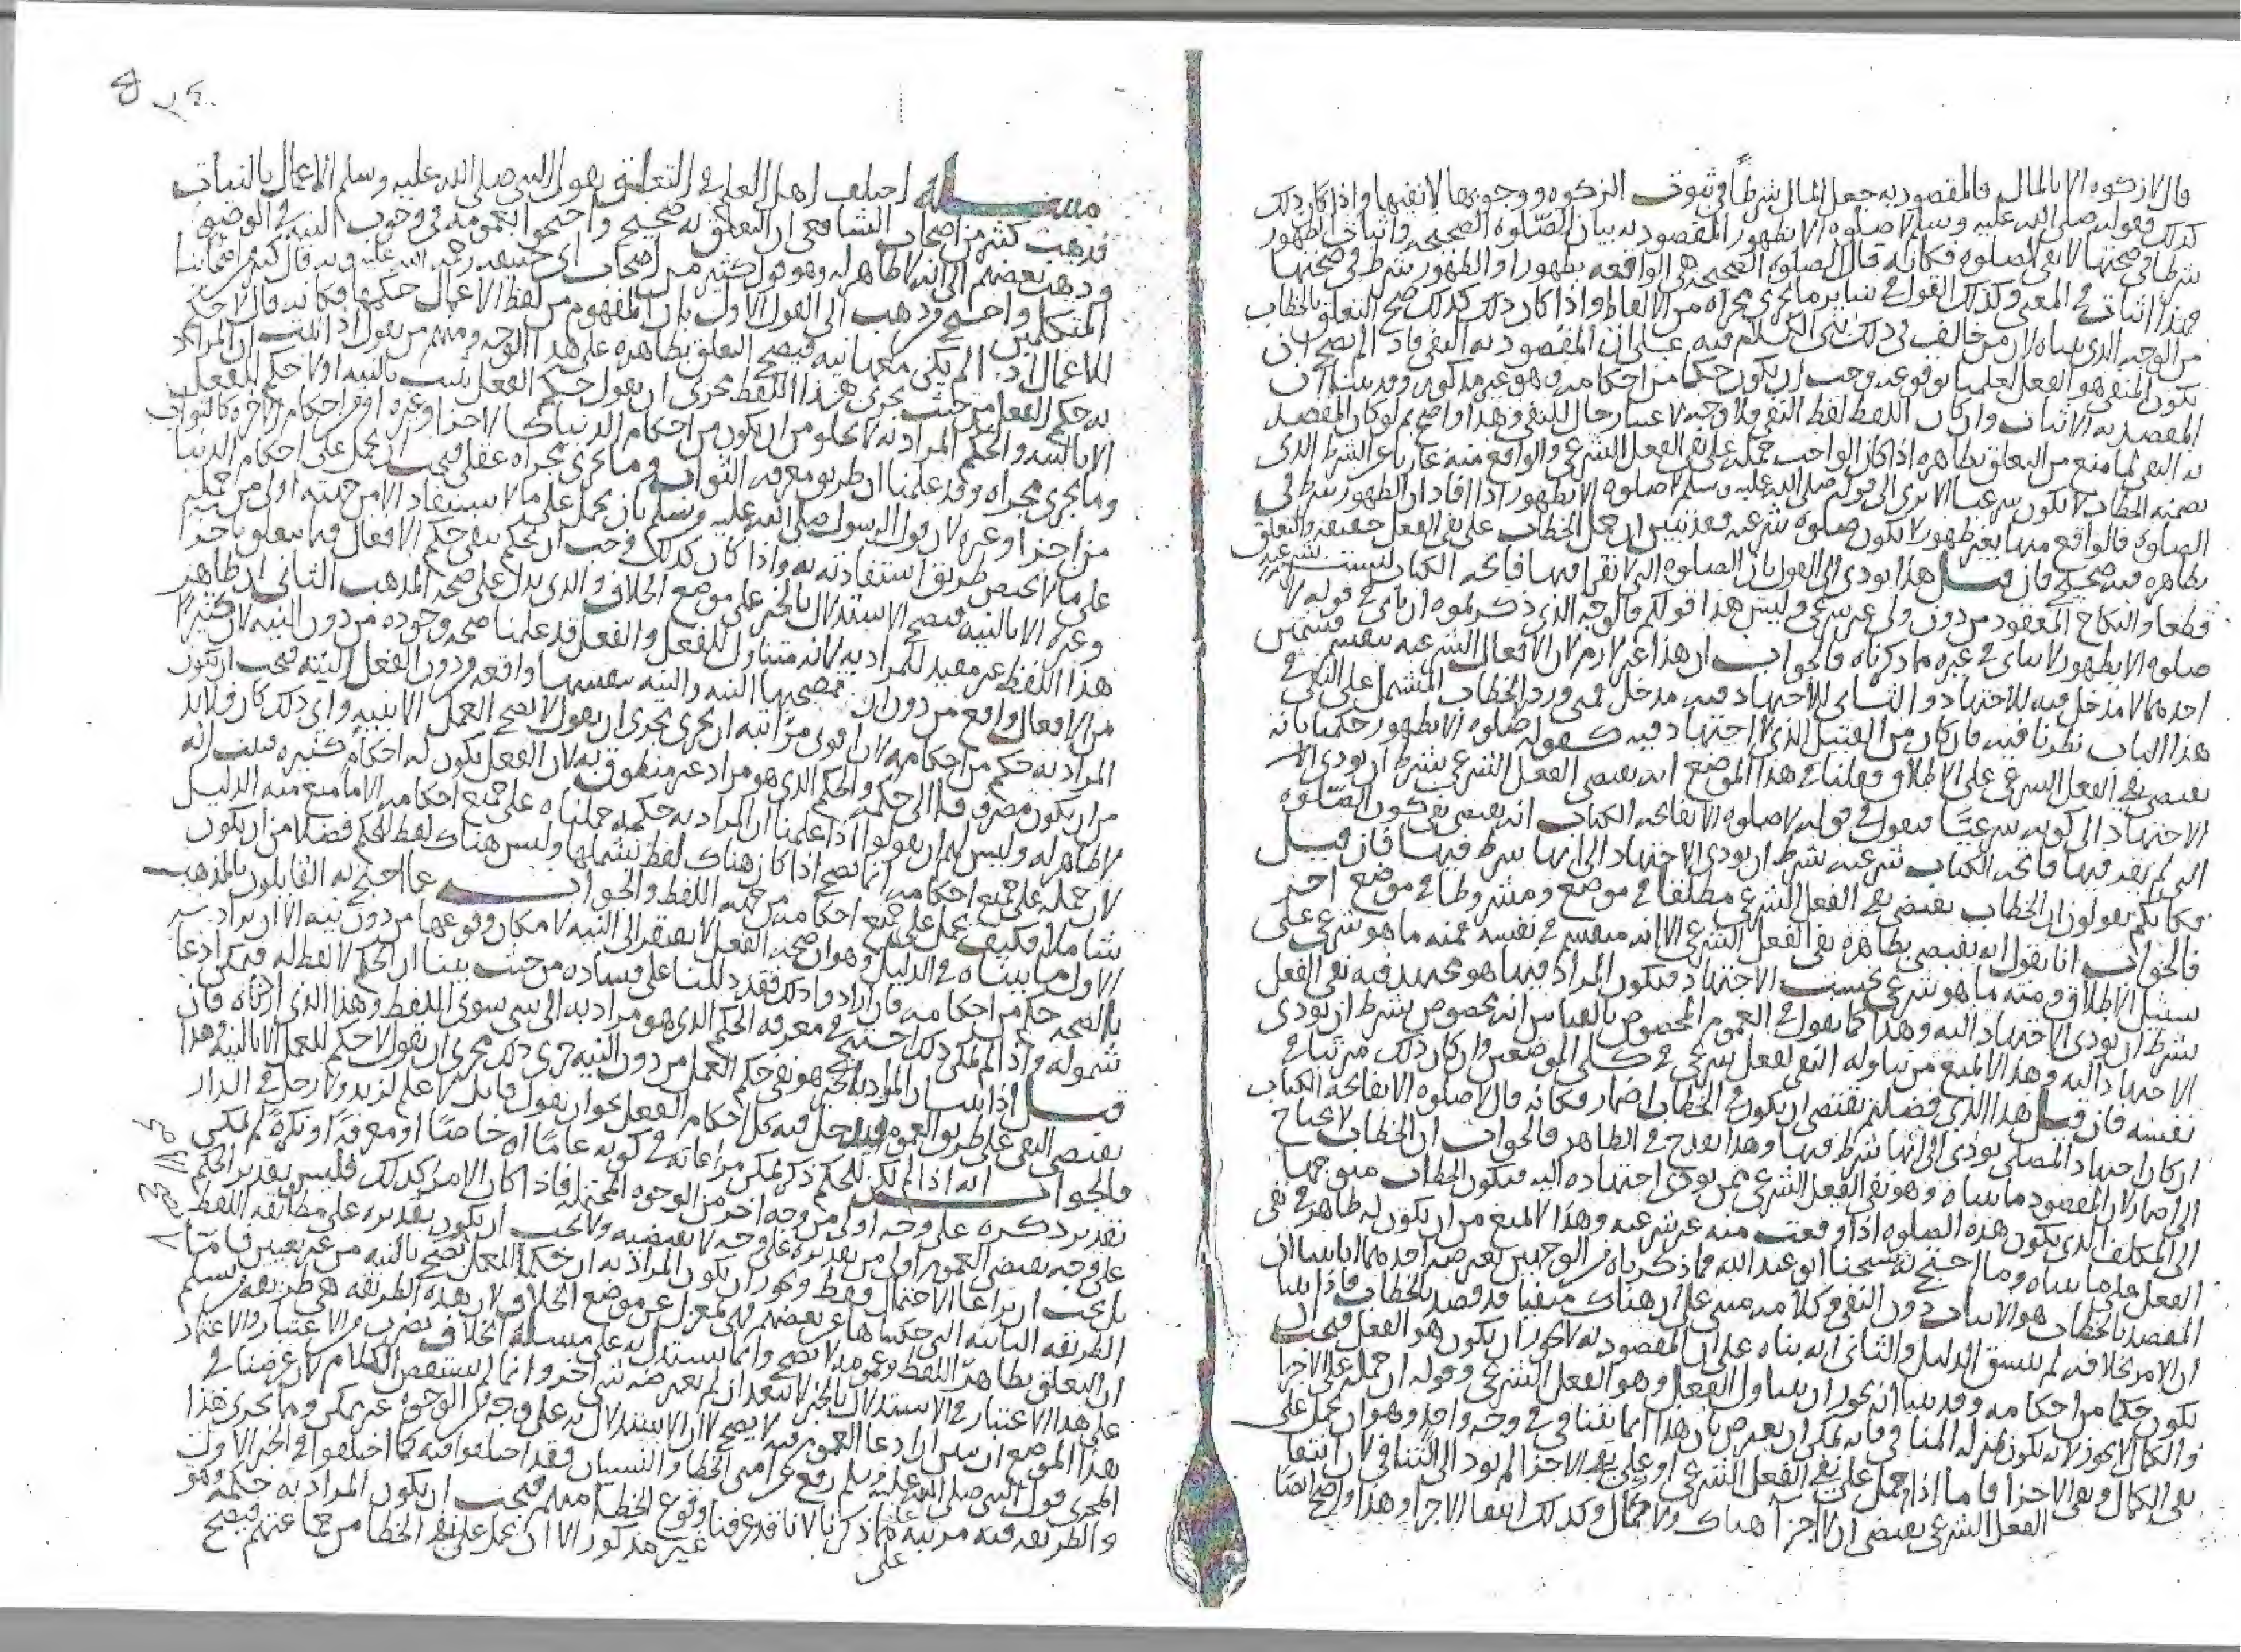 قال لا زكوة الا بالمال فالمقصود به جعل المال شرطاً في ثبوت الزكوة ووجوبها لا نفيها واذا كان ذلك
كذلك فقوله صلى الله عليه وسلم لا صلوة الا بطهور المقصود به بيان الصلوة الصحيحة واثبات الطهور
شرطا في صحتها لا نفي الصلوة فكانه قال الصلوة الصحيحة هي الواقعة بطهور او الطهور شرط في صحتها
فهذا اثبات في المعنى وكذلك القول في سائر ما يجري مجراه من الالفاظ واذا كان ذلك كذلك صح التعلق بالخطاب
من الوجه الذي بيناه لان من خالف في ذلك بنى الكلام فيه على ان المقصود به النفي فاذا لم يصح ان
يكون المنفي هو الفعل لعلمنا بوقوعه وجب ان يكون حكما من احكامه وهو غير مذكور وقد بينا ان
المقصد به الاثبات وان كان اللفظ لفظ النفي فلا وجه لاعتبار حال المنفي وهذا واضح ثم لو كان المقصد
به النفي لما منع من التعلق بظاهره اذا كان الواجب حمله على نفي الفعل الشرعي والواقع منه عاريا عن الشرط الذي
تضمنه الخطاب لا يكون شرعيا الا ترى الى قوله صلى الله عليه وسلم لا صلوة الا بطهور اذا افاد ان الطهور شرط في
الصلوة فالواقع منها بغير طهور لا يكون صلوة شرعية فقد تبين ان حمل الخطاب على نفي الفعل حقيقة والتعلق
بظاهره فيه صحيح فان قيل هذا يودي الى القول بان الصلوة التي لا تقرا فيها فاتحة الكتاب ليست شرعية
قطعا والنكاح المعقود من دون ولي غير شرعي وليس هذا قولكم فالوجه الذي ذكرتموه ان تاتى في قوله لا
صلوة الا بطهور لا يتاتى في غيره مما ذكرناه فالجواب ان هذا غير لازم لان الافعال الشرعية تنقسم قسمين
احدهما لا مدخل فيه للاجتهاد والثاني للاجتهاد فيه مدخل فمتى ورد الخطاب المشتمل على النفي في
هذا الباب نظرنا فيه فان كان من القبيل الذي لا اجتهاد فيه كقوله لا صلوة الا بطهور حكمنا بانه
يقتضي نفي الفعل الشرعي على الاطلاق وقلنا في هذا الموضع انه يقتضي الفعل الشرعي بشرط ان يودي
الاجتهاد الى كونه شرعيّا فنقول في قوله لا صلوة الا بفاتحة الكتاب انه يقتضي نفي كون الصلوة
التي لم تقرا فيها فاتحة الكتاب شرعية بشرط ان يودي الاجتهاد الى انها شرط فيها فان قيل
فكانكم تقولون ان الخطاب يقتضي نفي الفعل الشرعي مطلقا في موضع ومشروطا في موضع اخر
فالجواب انا نقول انه يقتضي بظاهره نفي الفعل الشرعي الا انه منقسم في نفسه فمنه ما هو شرعي على
سبيل الاطلاق ومنه ما هو شرعي بحسب الاجتهاد فيكون المراد فيما هو مجتهد فيه نفي الفعل
بشرط ان يودي الاجتهاد اليه وهذا كما نقول في العموم المخصوص بالقياس انه مخصوص بشرط ان يودي
الاجتهاد اليه وهذا لا يمنع من تناوله النفي لفعل شرعي في كلي الموضعين وان كان ذلك مرتبا في
نفسه فان قيل هذا الذي فصلتم يقتضي ان يكون في الخطاب اضمار فكانه قال لا صلوة الا بفاتحة الكتاب
ان كان اجتهاد المصلي يودي الى انها شرط فيها وهذا يقدح في الظاهر فالجواب ان الخطاب لا يحتاج
الى اضمار لان المقصود ما بيناه وهو نفي الفعل الشرعي عمن يودي اجتهاده اليه فيكون الخطاب متوجها
الى المكلف الذي يكون هذه الصلوة اذا وقعت منه غير شرعية وهذا لا يمنع من ان يكون له ظاهر في نفي
الفعل على ما بيناه وما احتج به شيخنا ابو عبد الله فما ذكرناه من الوجهين يعترضه احدهما انا بينا ان
المقصد بالخطاب هو الاثبات دون النفي وكلامه مبني على ان هناك منفيا قد قصد بالخطاب فاذا بينا
ان الامر بخلافه لم يتسق الدليل والثاني انه بناه على ان المقصود به لا يجوز ان يكون هو الفعل فيجب ان
يكون حكما من احكامه وقد بينا انه يجوز ان يتناول الفعل وهو الفعل الشرعي وقوله ان حمله على الاجزا
والكمال لا يجوز لانه يكون بمنزلة المنافي فانه يمكن ان يعترض بان هذا انما يتنافى في وجه واحد وهو ان يحمل على
نفي الكمال ونفي الاجزا فاما اذا حمل على نفي الفعل الشرعي او على نفي الاجزا لم يود الى التنافي لان انتفا
الفعل الشرعي يقتضي ان لا اجزآ هناك ولا كمال وكذلك انتفا الاجزا وهذا واضح ايضا
مسئلة اختلف اهل العلم في التعلق بقول النبي صلى الله عليه وسلم الاعمال بالنيات
فذهب كثير من اصحاب الشافعي ان التعلق به صحيح واحتجوا بعمومه في وجوب النية في الوضوء
وذهب بعضهم الى انه لا ظاهر له وهو قول كثير من اصحاب ابي حنيفة رحمة الله عليه وبه قال كثير من اصحابنا
المتكلمين واحتج من ذهب الى القول الاول بان المفهوم من لفظ الاعمال حكمها فكانه قال لا حكم
للاعمال اذا لم يكن معها نية فيصح التعلق بظاهره على هذا الوجه ومنهم من يقول اذا ثبت ان المراد
به حكم الفعل من حيث يجري هذا اللفظ مجرى ان يقول حكم الفعل يثبت بالنية او لا حكم للفعل
الا بالنية والحكم المراد به لا يخلو من ان يكون من احكام الدنيا كالاجزا وغيره او من احكام الاخرة كالثواب
وما يجري مجراه وقد علمنا ان طريق معرفة الثواب وما يجري مجراه عقلي فيجب ان يحمل على احكام الدنيا
من اجزا وغيره لان قول الرسول صلى الله عليه وسلم بان يحمل على ما لا يستفاد الا من جهته اولى من حمله
على ما لا يختص طريق استفادته به واذا كان كذلك وجب ان يحكم بنفي حكم الافعال فيما يتعلق باجزا
وغيره الا بالنية فيصح الاستدلال بالخبر على موضع الخلاف والذي يدل على صحة المذهب الثاني ان ظاهر
هذا اللفظ غير مفيد للمراد به لانه متناول للفعل والفعل قد علمنا صحة وجوده من دون النية لان كثيرا
من الافعال واقع من دون ان تصحبها النية والنية بنفسها واقعة ودون الفعل البتة فيجب ان يكون
المراد به حكم من احكامه لان اقوى مراتبه ان يجري مجرى ان يقول لا يصح العمل الا بنية واي ذلك كان فلا بد
من ان يكون مصروفا الى حكمه والحكم الذي هو مراد غير منطوق به لان الفعل يكون له احكام كثيرة فثبت انه
لا ظاهر له وليس لهم ان يقولوا اذا علمنا ان المراد به حكمه حملناه على جميع احكامه الا ما منع منه الدليل
لان حمله على جميع احكامه انما يصح اذا كان هناك لفظ يشملها وليس هناك لفظ الحكم فضلا من ان يكون
شاملا فكيف يحمل على جميع احكامه من جهة اللفظ والجواب عما احتج به القائلون بالمذهب
الاول ما بيناه في الدليل وهو ان صحة الفعل لا يفتقر الى النية لامكان وقوعها من دون نية الا ان يراد
بالصحة حكم من احكامه فان ارادوا ذلك فقد دللنا على فساده من حيث بينا ان الحكم لا لفظ له فيمكن ادعا
شموله واذا لم يمكن ذلك احتيج في معرفة الحكم الذي هو مراد به الى شي سوى اللفظ وهذا الذي اردناه فان
قيل اذا ثبت ان المراد بالخبر هو نفي حكم العمل من دون النية جرى ذلك مجرى ان يقول لا حكم للعمل الا بالنية وهذا
يقتضي النفي على طريق العموم فيدخل فيه كل احكام الفعل نحو ان يقول قائل لا علم لزيد ولا رجل في الدار
فالجواب انه اذا لم يكن للحكم ذكر يمكن مراعاته في كونه عامّا او خاصّا او معرفة او نكرة لم يكن
تقدير ذكره على وجه اولى من وجه اخر من الوجوه المحتملة فاذا كان الامر كذلك فليس تقدير الحكم
على وجه يقتضي العموم اولى من تقديره على وجه لا يقتضيه ولا يجب ان يكون تقديره على مطابقة اللفظ
بل يجب ان يراعا الاحتمال فقط ويجوز ان يكون المراد به ان حكم الفعل يصح بالنية من غير تعيين فاما
الطريقة الثانية التي حكيناها عن بعضهم فهي بمعزل عن موضع الخلاف لان هذه الطريقة هي طريقة من يسلم
ان التعلق بظاهر اللفظ وعمومه لا يصح وانما يستدل به على مسئلة الخلاف بضرب من الاعتبار والاعتماد
على هذا الاعتبار في الاستدلال بالخبر لا يبعد ان لم يعترضه شي اخر وانما لم نستقص الكلام لان غرضنا في
هذا الموضع ان نبين ان ادعا العموم فيه لا يصح لا ان الاستدلال به على وجه من الوجوه غير ممكن وما يجري هذا
المجرى قول النبي صلى الله عليه وسلم رفع عن امتي الخطا والنسيان فقد اختلفوا فيه كما اختلفوا في الخبر الاول
والطريقة فيه مرتبة على ما ذكرنا لانا قد عرفنا وقوع الخطا منهم فيجب ان يكون المراد به حكمه وهو
غير مذكور الا ان يحمل على نفي الخطا من جماعتهم فيصح
على